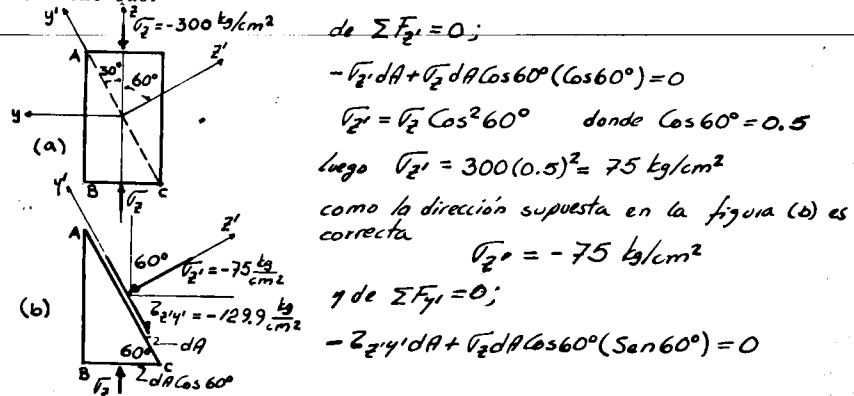 y'
z
σz = -300 kg/cm²
A
z'
30° 60°
y
(a)
B
C
σz
y'
A
z'
60°
σz' = -75 kg/cm²
(b)
τz'y' = -129.9 kg/cm²
dA
60°
B
C
σz
dA Cos 60°
de ΣFz' = 0;
-σz' dA + σz dA Cos 60° (Cos 60°) = 0
σz' = σz Cos² 60° donde Cos 60° = 0.5
luego σz' = 300 (0.5)² = 75 kg/cm²
como la dirección supuesta en la figura (b) es
correcta
σz' = - 75 kg/cm²
y de ΣFy' = 0;
- τz'y' dA + σz dA Cos 60° (Sen 60°) = 0